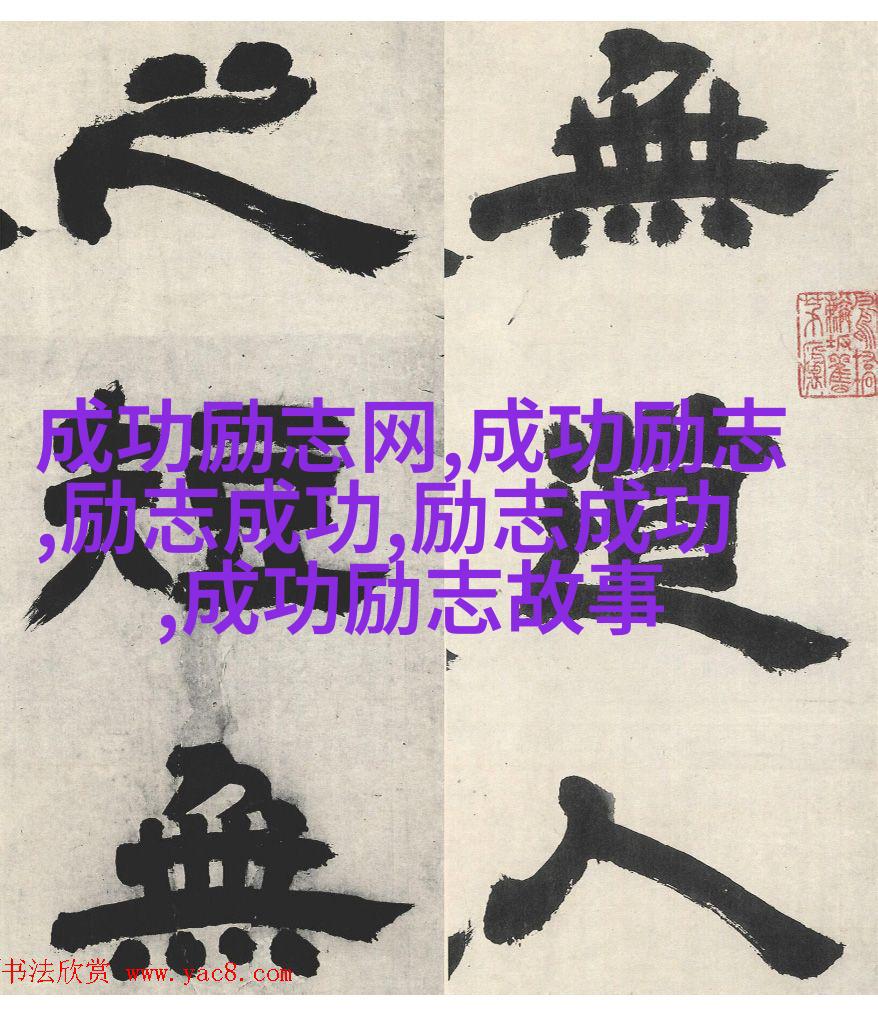 無道人
之短無
成功励志网,成功励志
,励志成功,励志成功
,成功励志故事
书法欣赏 www.yac8.com